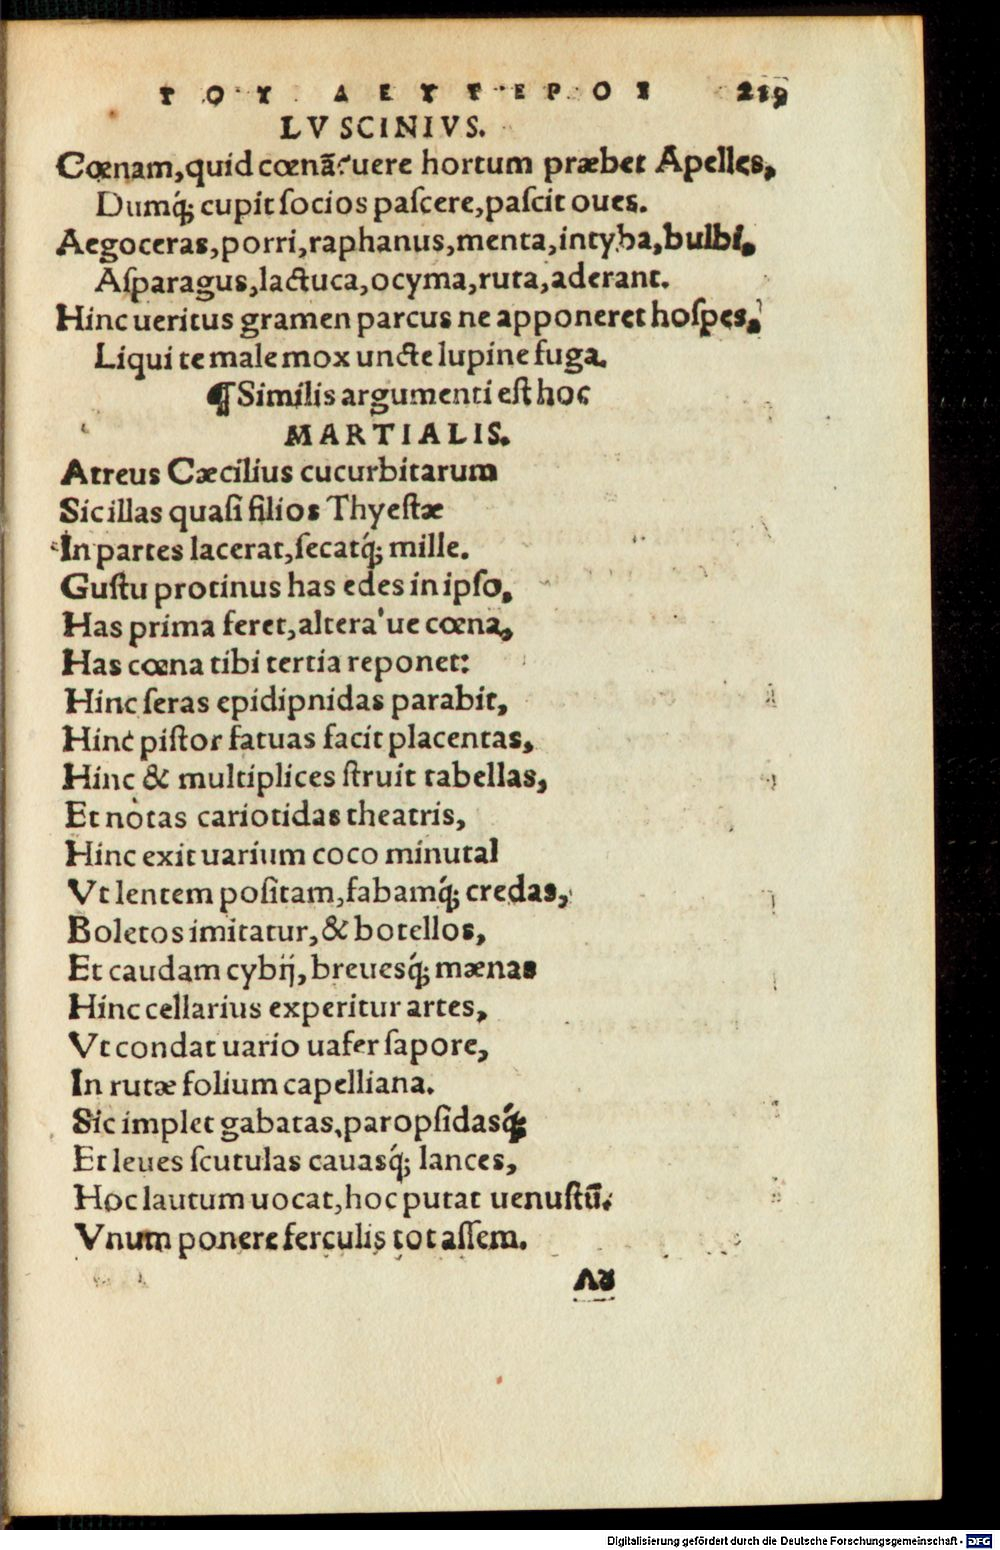 ΤΟΥ ΔΕΥΤΕΡΟΥ 219
LVSCINIVS.
Cœnam, quid cœnã? uere hortum præbet Apelles,
Dumq́; cupit socios pascere, pascit oues.
Aegoceras, porri, raphanus, menta, intyba, bulbi,
Asparagus, lactuca, ocyma, ruta, aderant.
Hinc ueritus gramen parcus ne apponeret hospes,
Liqui te male mox uncte lupine fuga.
¶ Similis argumenti est hoc
MARTIALIS.
Atreus Cæcilius cucurbitarum
Sic illas quasi filios Thyestæ
In partes lacerat, secatq́; mille.
Gustu protinus has edes in ipso,
Has prima feret, altera'ue cœna,
Has cœna tibi tertia reponet:
Hinc seras epidipnidas parabit,
Hinc pistor fatuas facit placentas,
Hinc & multiplices struit tabellas,
Et nòtas cariotidas theatris,
Hinc exit uarium coco minutal
Vt lentem positam, fabamq́; credas,
Boletos imitatur, & botellos,
Et caudam cybij, breuesq́; mænas
Hinc cellarius experitur artes,
Vt condat uario uafer sapore,
In rutæ folium capelliana.
Sic implet gabatas, paropsidasq́;
Et leues scutulas cauasq́; lances,
Hoc lautum uocat, hoc putat uenustũ.
Vnum ponere ferculis tot assem.
Λȣ
Digitalisierung gefördert durch die Deutsche Forschungsgemeinschaft - DFG